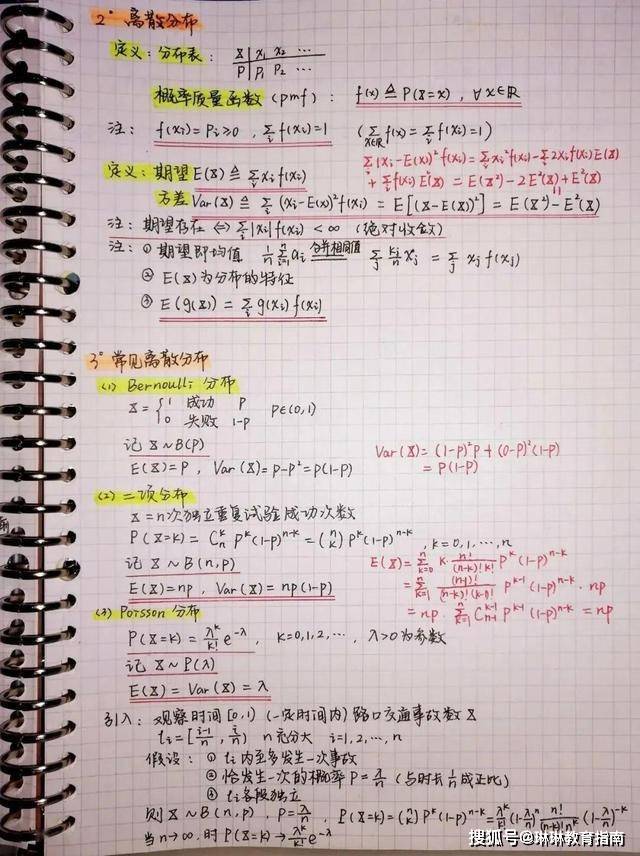 2° 离散分布
定义：分布表： X | x₁ x₂ ⋯
P | p₁ p₂ ⋯
概率质量函数 (pmf)： f(x) ≜ P(X=x), ∀x∈ℝ
注： f(xᵢ)=Pᵢ≥0, ∑ᵢ f(xᵢ)=1 (∑_{x∈ℝ} f(x)=∑ᵢ f(xᵢ)=1)
∑ᵢ(xᵢ-E(X))²f(xᵢ)=∑ᵢxᵢ²f(xᵢ)-∑ᵢ2xᵢf(xᵢ)E(X)
定义：期望 E(X) ≜ ∑ᵢ xᵢf(xᵢ)
+ ∑ᵢf(xᵢ)E²(X) = E(X²)-2E²(X)+E²(X)
方差 Var(X) ≜ ∑ᵢ (xᵢ-E(X))²f(xᵢ) = E[(X-E(X))²] = E(X²)-E²(X)
注：期望存在 ⇔ ∑ᵢ|xᵢ|f(xᵢ) < ∞ (绝对收敛)
注：① 期望即均值 1/n ∑_{i=1}^{n} aᵢ 合并相同值 ∑ⱼ kⱼ/n xⱼ = ∑ⱼ xⱼ f(xⱼ)
② E(X)为分布的特征
③ E(g(X)) = ∑ᵢ g(xᵢ)f(xᵢ)
3° 常见离散分布
(1) Bernoulli 分布
X = { 1 成功 p p∈(0,1)
0 失败 1-p
记 X~B(p)
Var(X) = (1-p)²p + (0-p)²(1-p)
E(X)=p, Var(X)=p-p²=p(1-p)
= p(1-p)
(2) 二项分布
X = n次独立重复试验成功次数
P(X=k) = Cₙᵏ pᵏ(1-p)ⁿ⁻ᵏ = (n k) pᵏ(1-p)ⁿ⁻ᵏ, k=0,1,⋯,n
记 X~B(n,p)
E(X) = ∑_{k=0}^{n} k· n!/((n-k)!k!) pᵏ(1-p)ⁿ⁻ᵏ
E(X)=np, Var(X)=np(1-p)
= ∑_{k=1}^{n} (n-1)!/((n-k)!(k-1)!) pᵏ⁻¹(1-p)ⁿ⁻ᵏ · np
(3) Poisson 分布
= np · ∑_{k=1}^{n} C_{n-1}^{k-1} pᵏ⁻¹(1-p)ⁿ⁻ᵏ = np
P(X=k) = λᵏ/k! e^{-λ}, k=0,1,2,⋯, λ>0为参数
记 X~P(λ)
E(X) = Var(X) = λ
引入：观察时间[0,1) (一定时间内) 路口交通事故数X
tᵢ=[(i-1)/n, i/n) n充分大 i=1,2,⋯,n
假设：① tᵢ内至多发生一次事故
② 恰发生一次的概率 P=λ/n (与时长1/n成正比)
③ tᵢ各段独立
则 X~B(n,p), p=λ/n, P(X=k)=(n k) pᵏ(1-p)ⁿ⁻ᵏ=λᵏ/k!(1-λ/n)ⁿ n!/((n-k)!nᵏ)(1-λ/n)⁻ᵏ
当n→∞,时 P(X=k)→λᵏ/k! e^{-λ}
搜狐号@琳琳教育指南